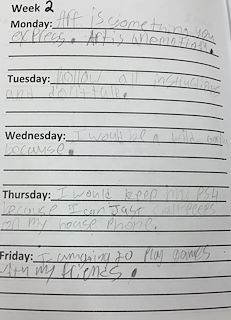 Week 2
Monday: Art is something you
express. Art is an
Tuesday: follow all instructions
and don't talk.
Wednesday: I would be a wild
because.
Thursday: I would keep my PS4
because I can Just
on my house phone.
Friday: I am going to Play games
with my friends.